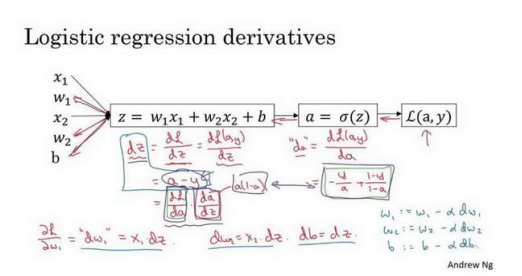 Logistic regression derivatives
x₁
w₁
x₂
w₂
b
z = w₁x₁ + w₂x₂ + b
a = σ(z)
ℒ(a, y)
dz = dℒ/dz = dℒ(a,y)/dz
"da" = dℒ(a,y)/da
= a - y
= dℒ/da · da/dz
a(1-a)
= -y/a + 1-y/1-a
∂ℒ/∂w₁ = "dw₁" = x₁·dz.
dw₂ = x₂·dz.
db = dz.
w₁ := w₁ - α dw₁
w₂ := w₂ - α dw₂
b := b - α db.
Andrew Ng